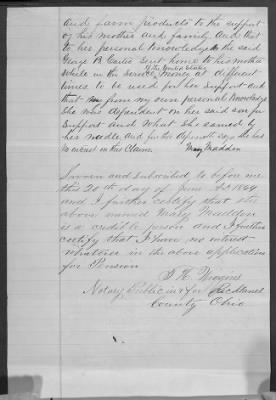 and farm products to the support
of his mother and family. And that
to her personal Knowledge the said
George B. sent home to his mother
while in the Service of the United States money at different
times to be used for her Support and
that from my own personal Knowledge
She was dependant on her said son for
Support and what She earned by
her needle. And further says she has
no interest in this Claim. Mary Madden
Sworn and Subscribed to before me
this 20th day of June AD 1864
and I further certify that the
above named Mary Madden
is a credible person and I further
certify that I have no interest
whatever in the above application
for Pension
Notary Public in & for
County Ohio